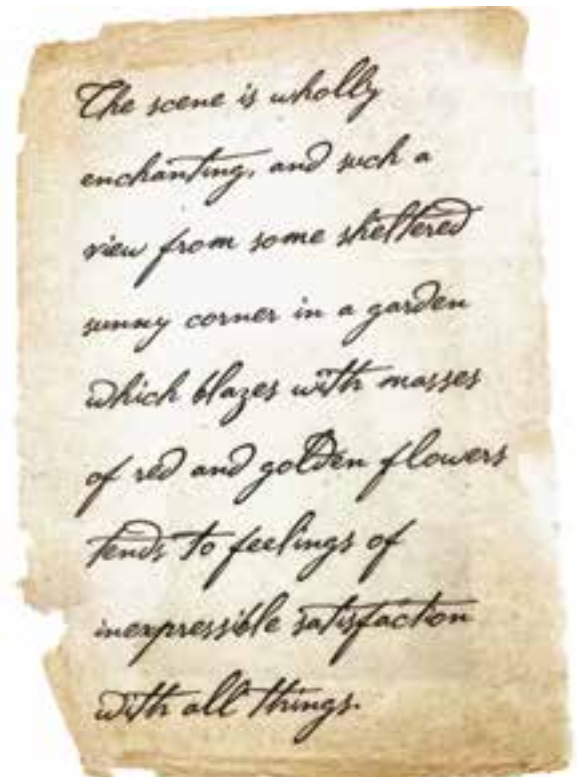 The scene is wholly
enchanting, and such a
view from some sheltered
sunny corner in a garden
which blazes with masses
of red and golden flowers
tends to feelings of
inexpressible satisfaction
with all things.